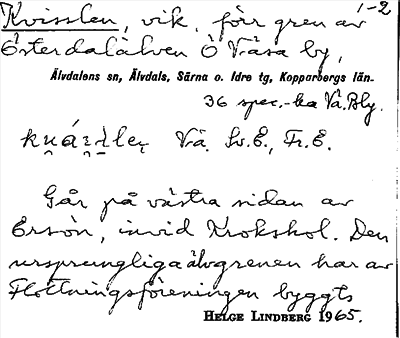 1-2
Kvisslen, vik, förr gren av
Österdalälven Ö Våsa by,
Älvdalens sn, Älvdals, Särna o. Idre tg, Kopparbergs län-
36 spec.-ka Vå. Bly.
Vå. Lv.E., Fr.E.
Går på västra sidan av
Ersön, invid Krokshol. Den
ursprungliga älvgrenen har av
Flottningsföreningen byggts
HELGE LINDBERG 1965.